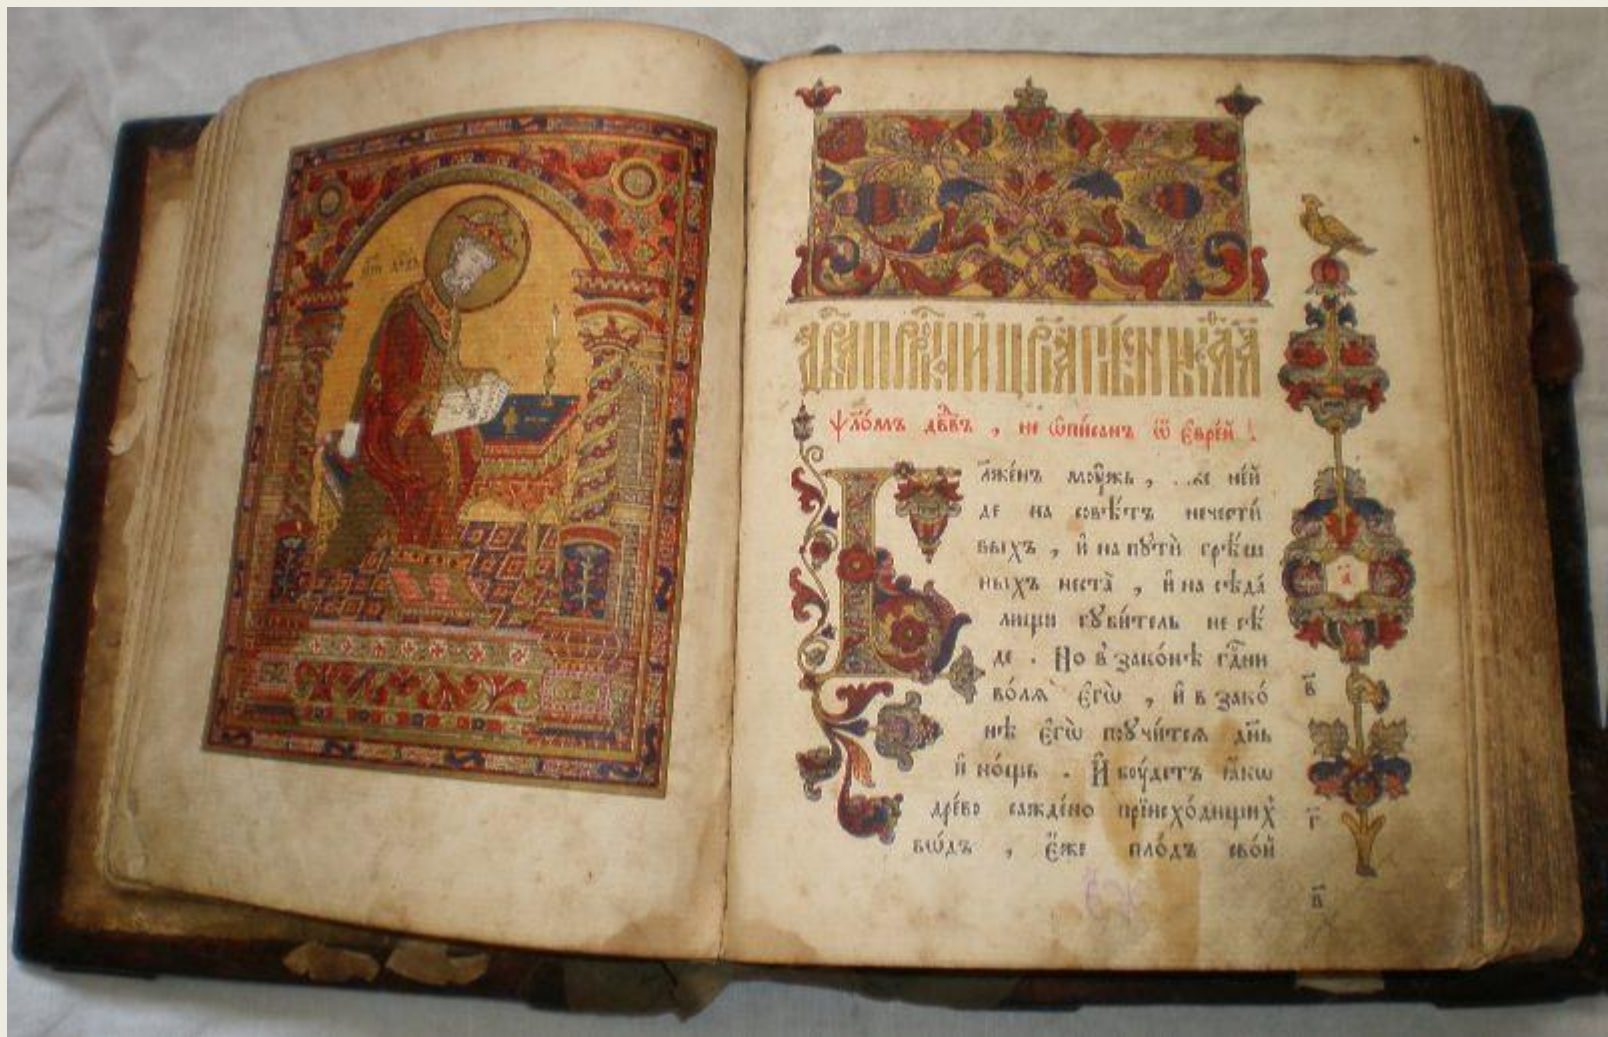 цр҃ь дв҃дъ
дв҃да прⷪ҇рка и цр҃ѧ пѣснь
ѱло́мъ дв҃дъ , не ѡ҆пи́санъ ѿ є҆врє́й
Бл҃же́нъ моу́жь , и́же не́и
де на совѣ́тъ нечести́
выхъ , и҆ на пꙋтѝ грѣ́ш
ныхъ неста̀ , и҆ на сѣда́
лищи гꙋби́тель не сѣ́
де . Но в̾ зако́нѣ гдⷭ҇ни
во́лѧ є҆гѡ̀ , и҆ в зако́
нѣ є҆гѡ̀ поꙋчи́тсѧ дн҃ь
и҆ но́щь . И҆ боу́детъ ꙗ҆́кѡ
дре́во саждено̀ при̑исхо́дищих̾
во́дъ , є҆́же пло́дъ сво́й
а҃
в҃
г҃